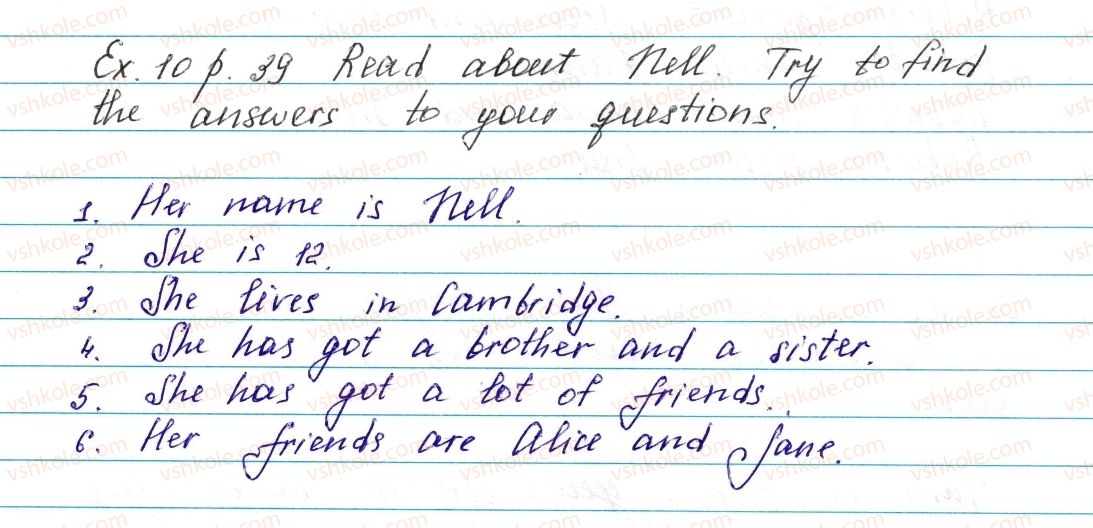 Ex. 10 p. 39 Read about Nell. Try to find
the answers to your questions.
1. Her name is Nell.
2. She is 12.
3. She lives in Cambridge.
4. She has got a brother and a sister.
5. She has got a lot of friends.
6. Her friends are Alice and Jane.